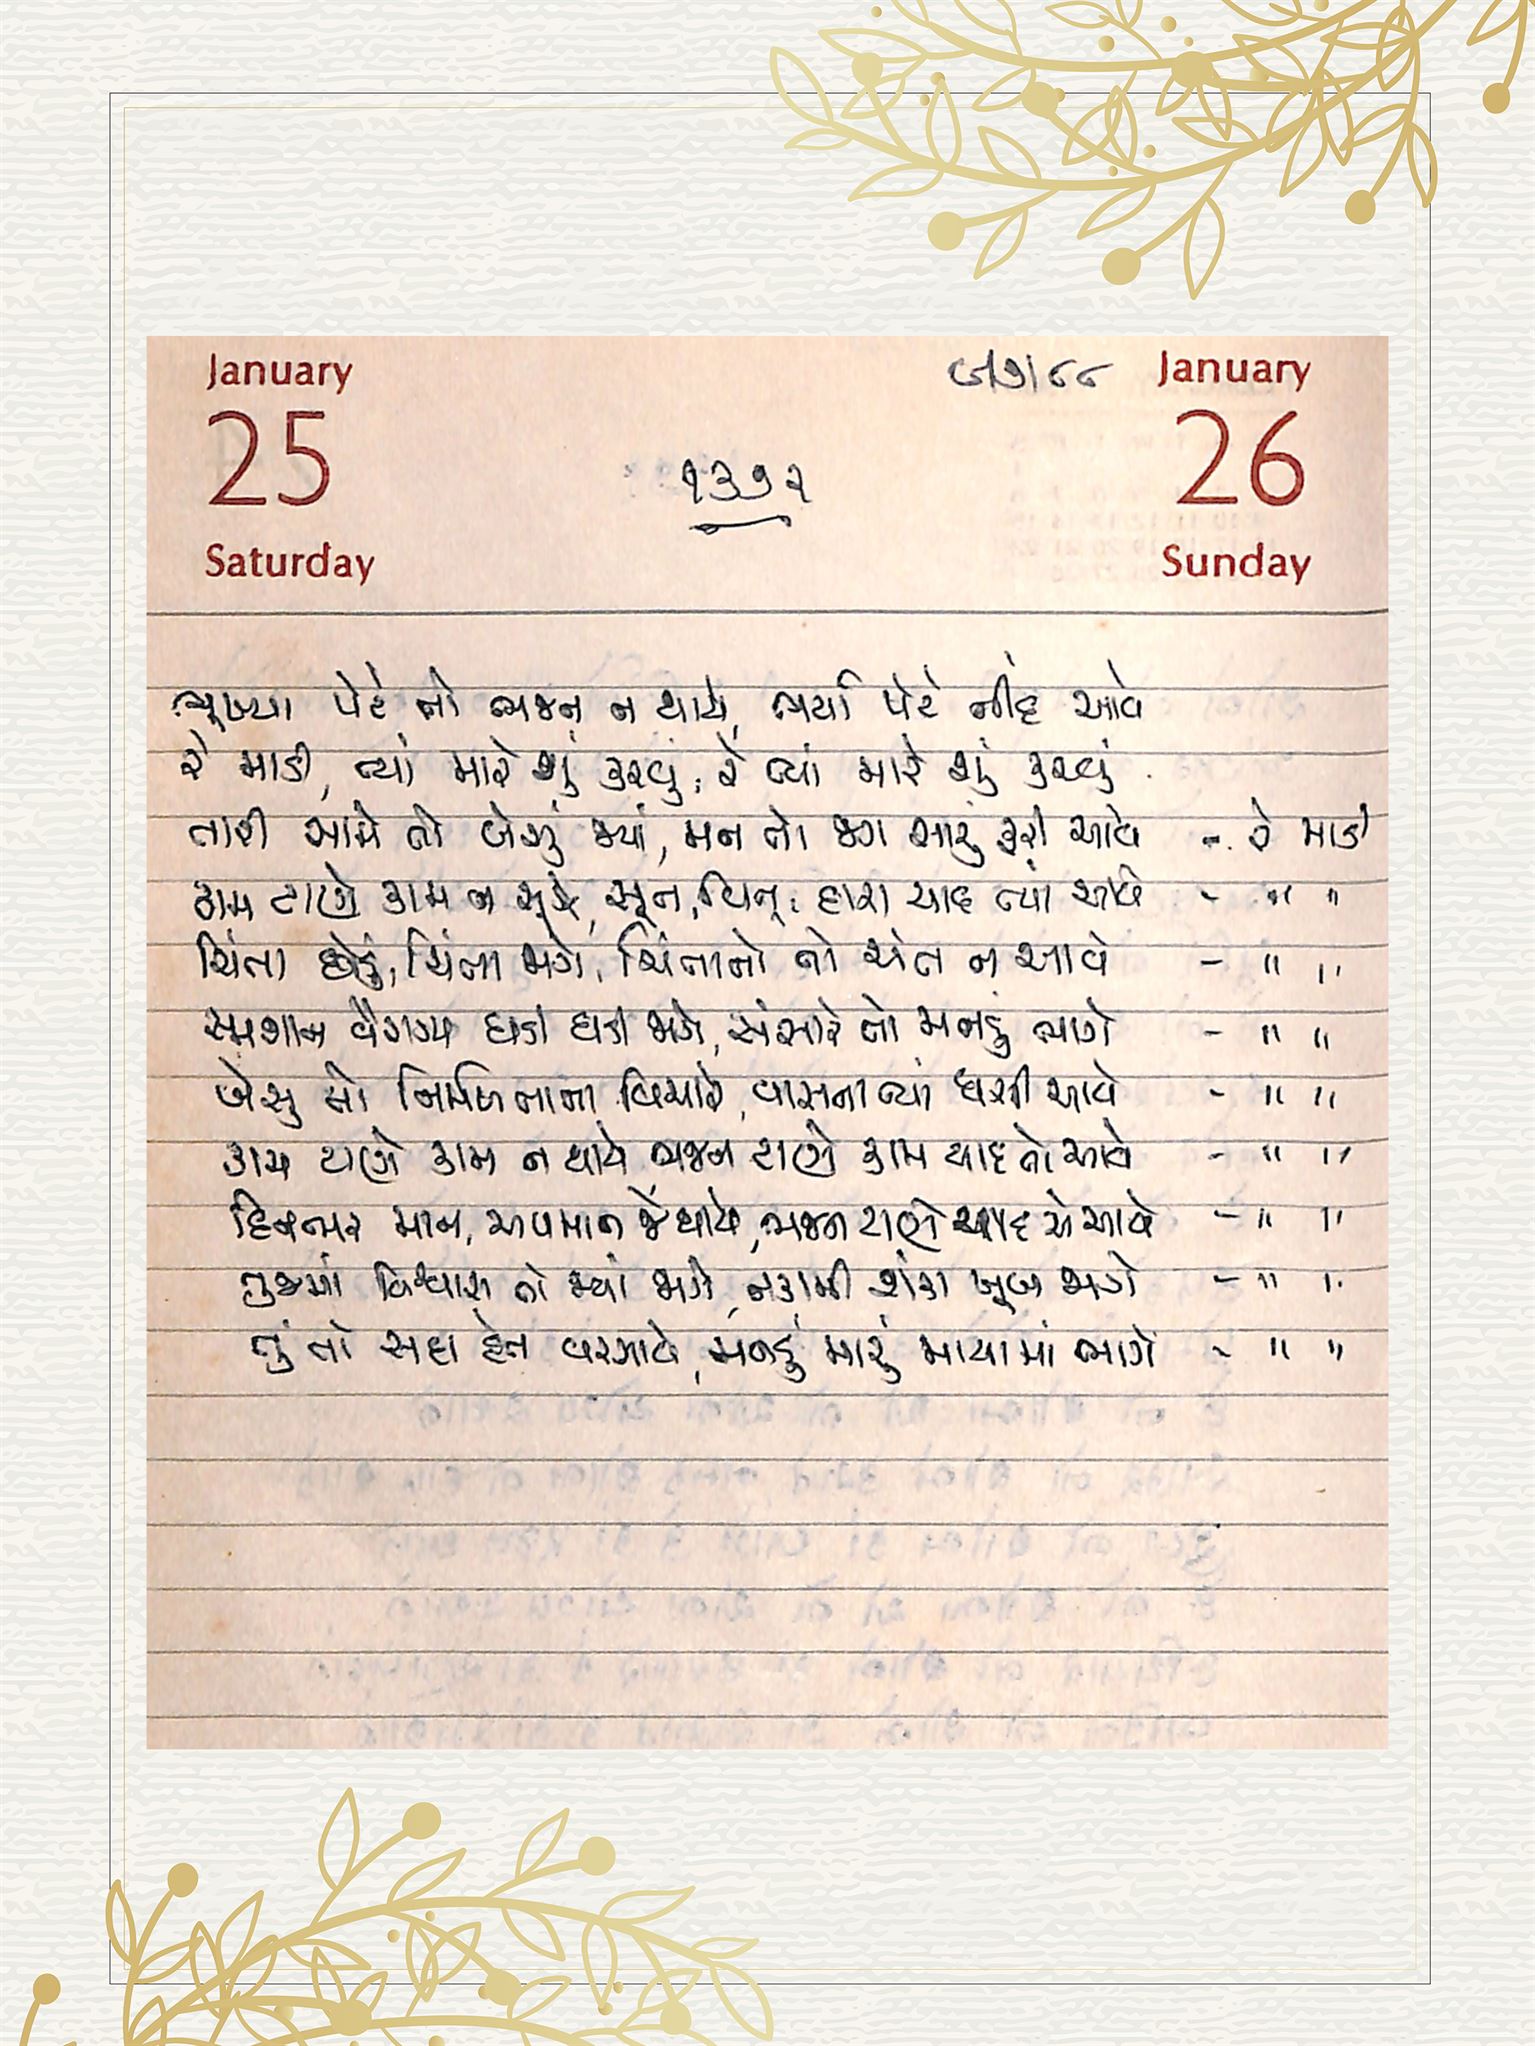 January
25
Saturday
૧૩૭૨
January
26
Sunday
ભૂખ્યા પેટે તો ભજન ન થાયે, ભર્યા પેટે નીંદ આવે
રે માડી, ત્યાં મારે શું કરવું; રે ત્યાં મારે શું કરવું
તારી સામે તો બેઠું જ્યાં, મન તો જગ સારું ફરી આવે - રે માડી
કામ ટાણે કામ ન સૂઝે, સૂના, તારી યાદ ત્યાં આવે - " "
ચિંતા છોડું, ચિંતા જાગે, ચિંતાનો તો અંત ન આવે - " "
સ્મશાન વૈરાગ્ય ઘડી ઘડી જાગે, સંસારે તો મનડું ભાગે - " "
બેસુ તો નિર્મળતાના વિચારે, વાસના ત્યાં ધસી આવે - " "
કામ ટાણે કામ ન થાયે ભજન ટાણે કામ યાદ તો આવે - " "
દિનભર માન, અપમાન જે થાયે, ભજન ટાણે યાદ એ આવે - " "
તુજમાં વિશ્વાસ તો જ્યાં જાગે, નકામી શંકા ખૂબ જાગે - " "
તું તો સદા હેત વરસાવે, મનડું મારું માયામાં ભાગે - " "